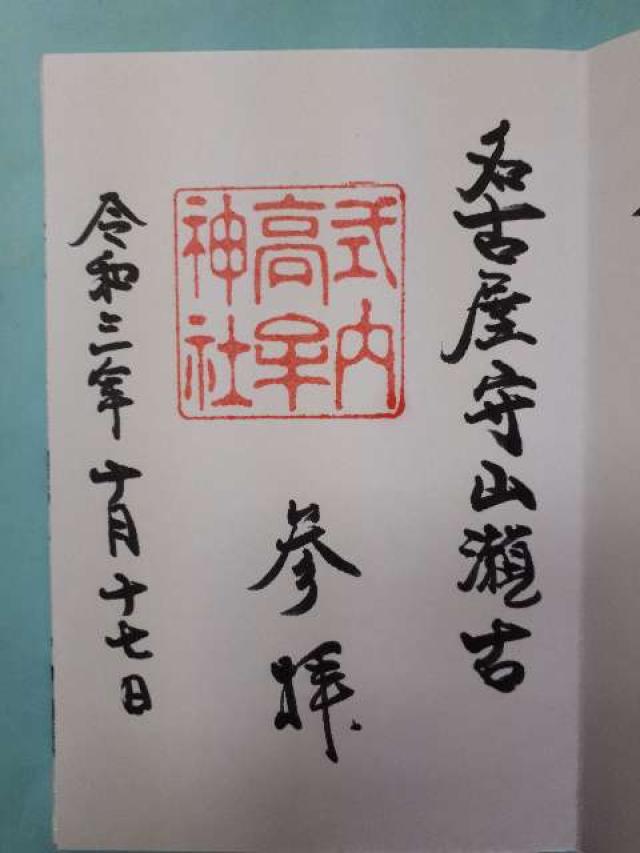 名古屋守山瀬古
式内
高牟
神社
参拝
令和三年十月十七日